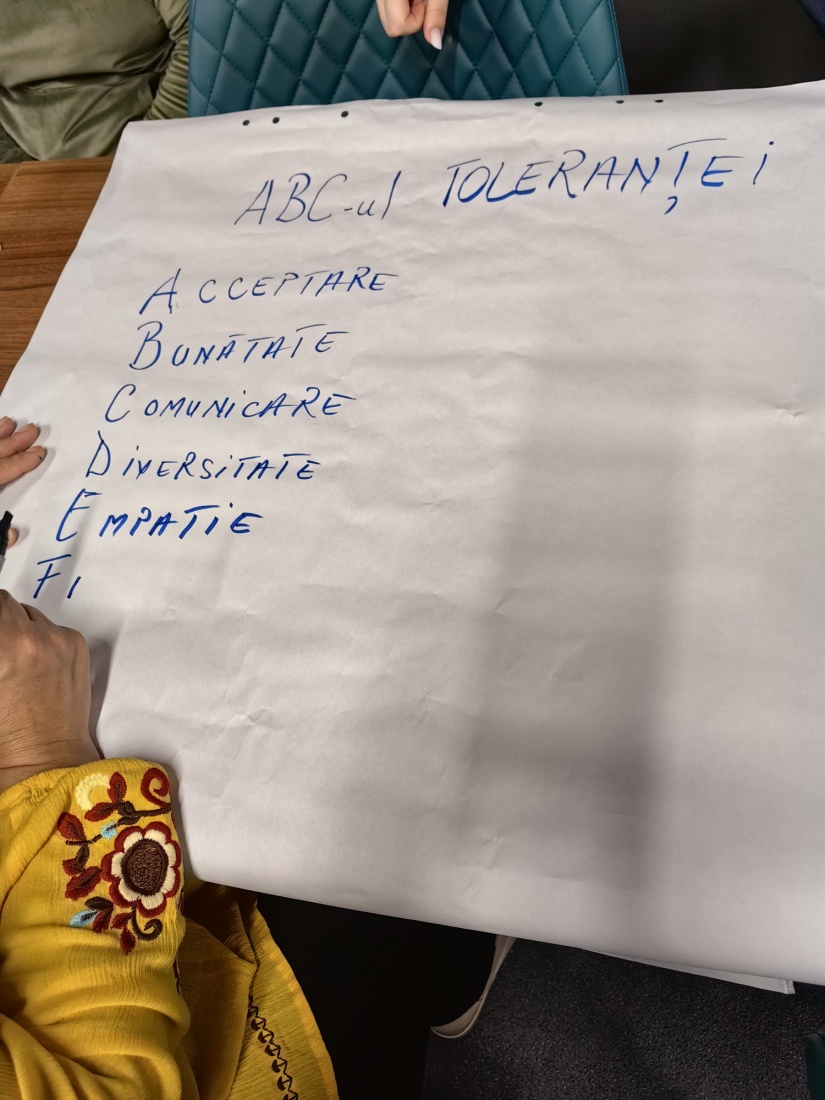 ABC-ul TOLERANȚEi
ACCEPTARE
BUNĂTATE
COMUNiCARE
DiVERSiTATE
EMPATiE
Fi